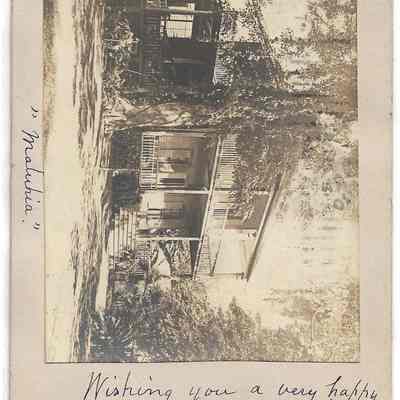 "Maluhia."
Wishing you a very happy